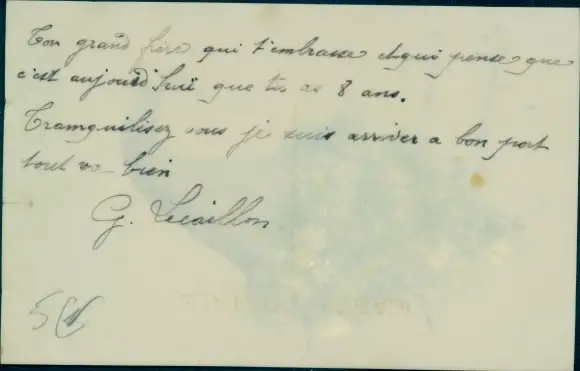 Ton grand frère qui t'embrasse et qui pense que
c'est aujourd'hui que tu as 8 ans.
Tramquilisez vous je suis arriver a bon port
tout va bien
G. Lecaillon